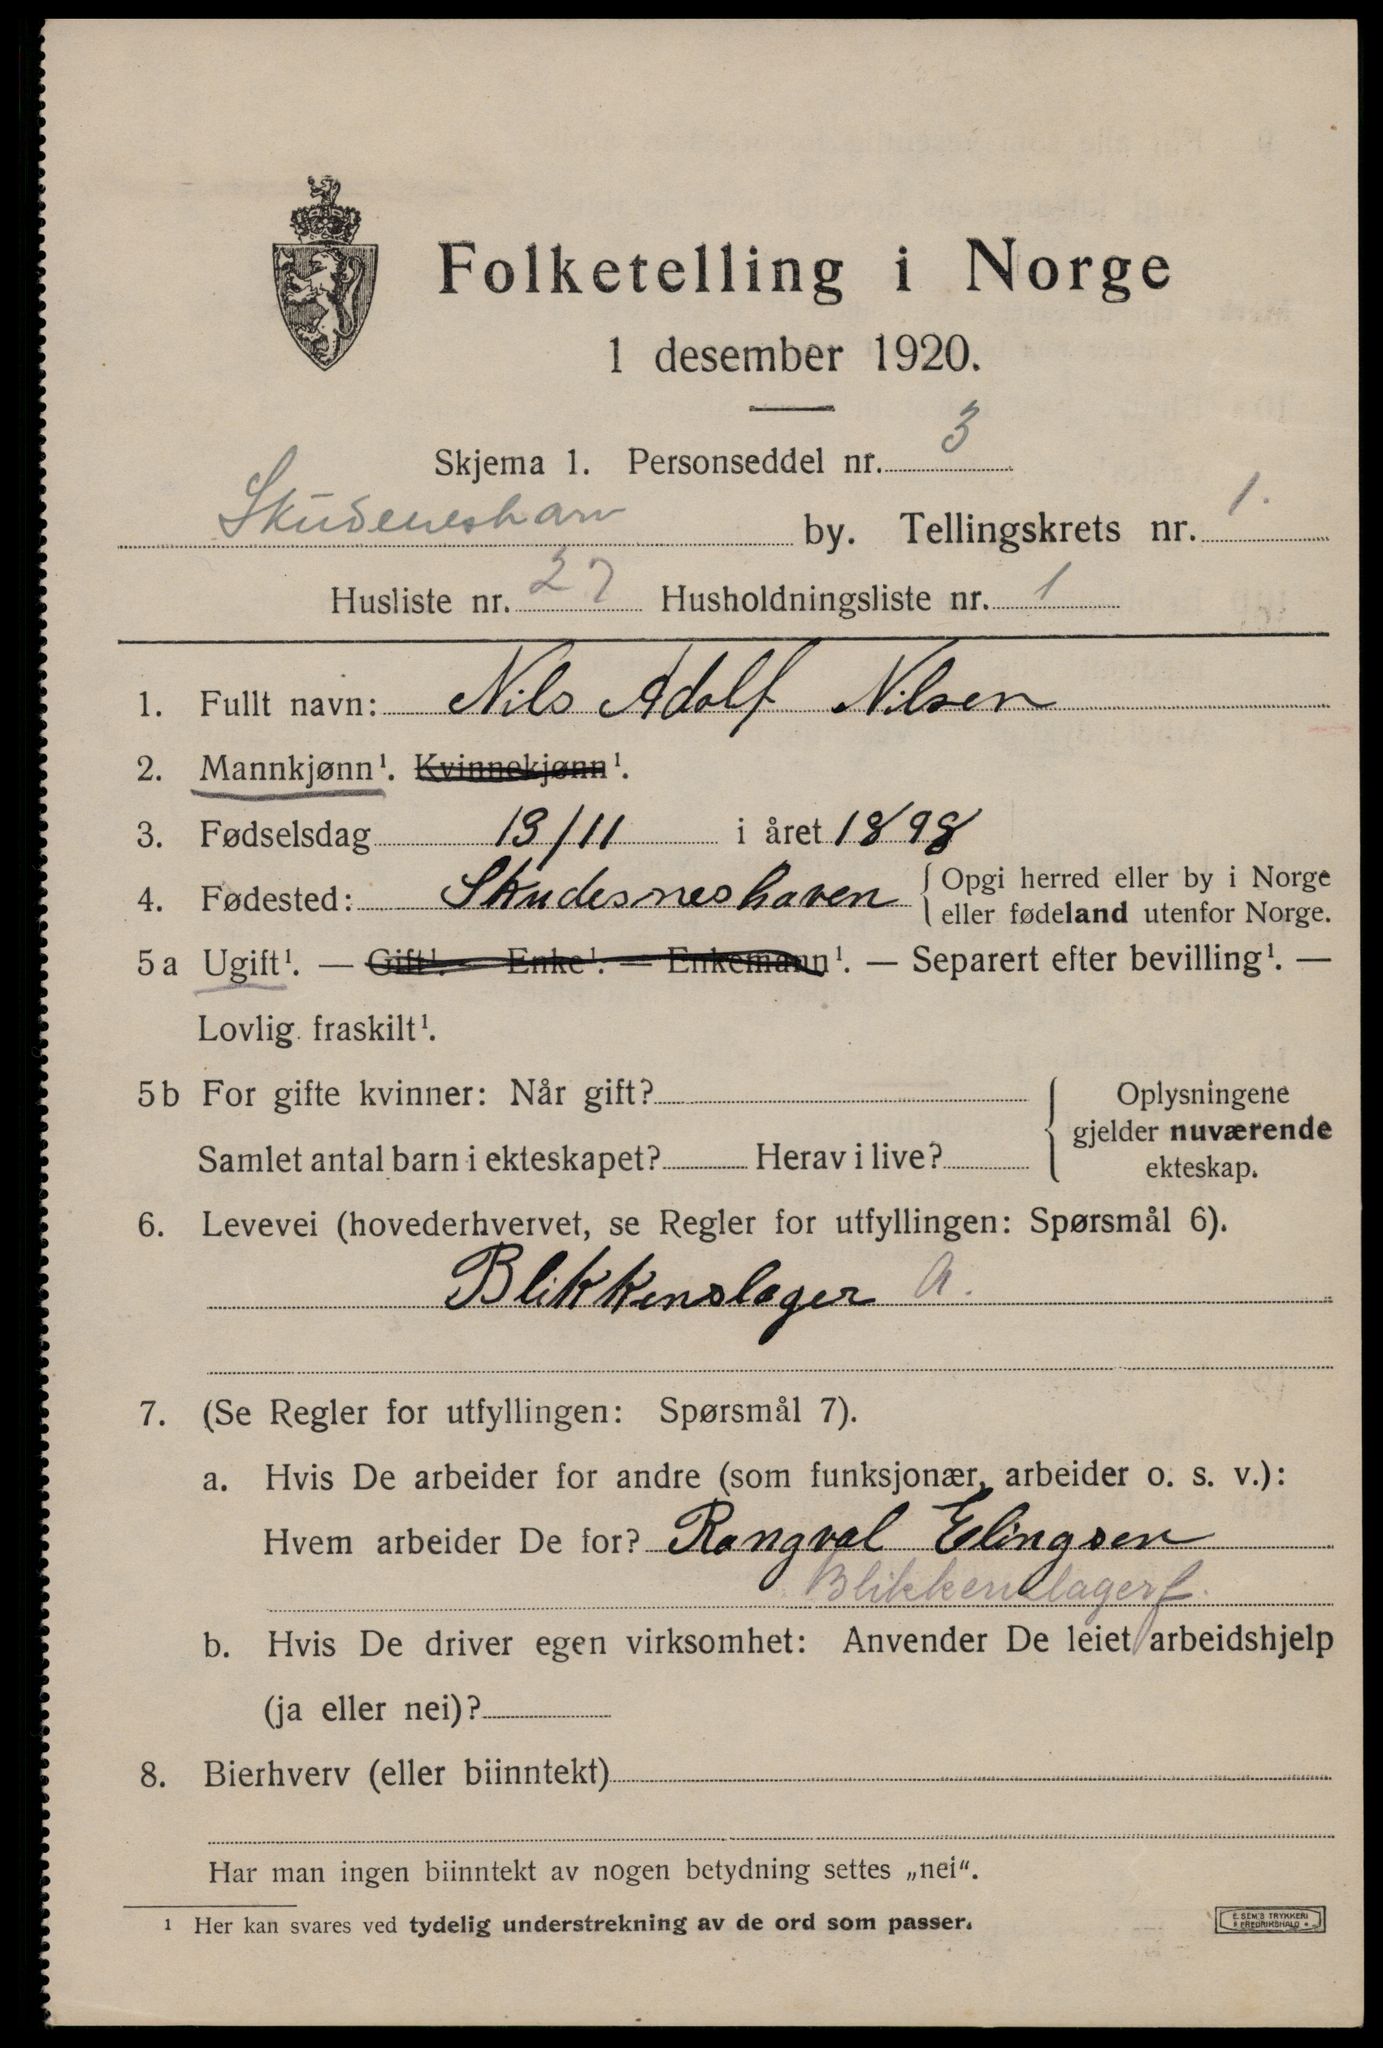 Folketelling i Norge
1 desember 1920.
Skjema 1. Personseddel nr. 3
Skudeneshavn by. Tellingskrets nr. 1.
Husliste nr. 27 Husholdningsliste nr. 1
1. Fullt navn: Nils Adolf Nilsen
2. Mannkjønn¹. Kvinnekjønn¹.
3. Fødselsdag 13/11 i året 1898
4. Fødested: Skudesneshaven { Opgi herred eller by i Norge
eller fødeland utenfor Norge.
5a Ugift¹. — Gift¹. — Enke¹. — Enkemann¹. — Separert efter bevilling¹. —
Lovlig fraskilt¹.
5b For gifte kvinner: Når gift?
Samlet antal barn i ekteskapet? Herav i live?
{ Oplysningene
gjelder nuværende
ekteskap.
6. Levevei (hovederhvervet, se Regler for utfyllingen: Spørsmål 6).
Blikkenslager A.
7. (Se Regler for utfyllingen: Spørsmål 7).
a. Hvis De arbeider for andre (som funksjonær, arbeider o. s. v.):
Hvem arbeider De for? Rangval Elingsen
Blikkenslagerf.
b. Hvis De driver egen virksomhet: Anvender De leiet arbeidshjelp
(ja eller nei)?
8. Bierhverv (eller biinntekt)
Har man ingen biinntekt av nogen betydning settes „nei“.
¹ Her kan svares ved tydelig understrekning av de ord som passer.
E. SEM'S TRYKKERI
FREDRIKSHALD